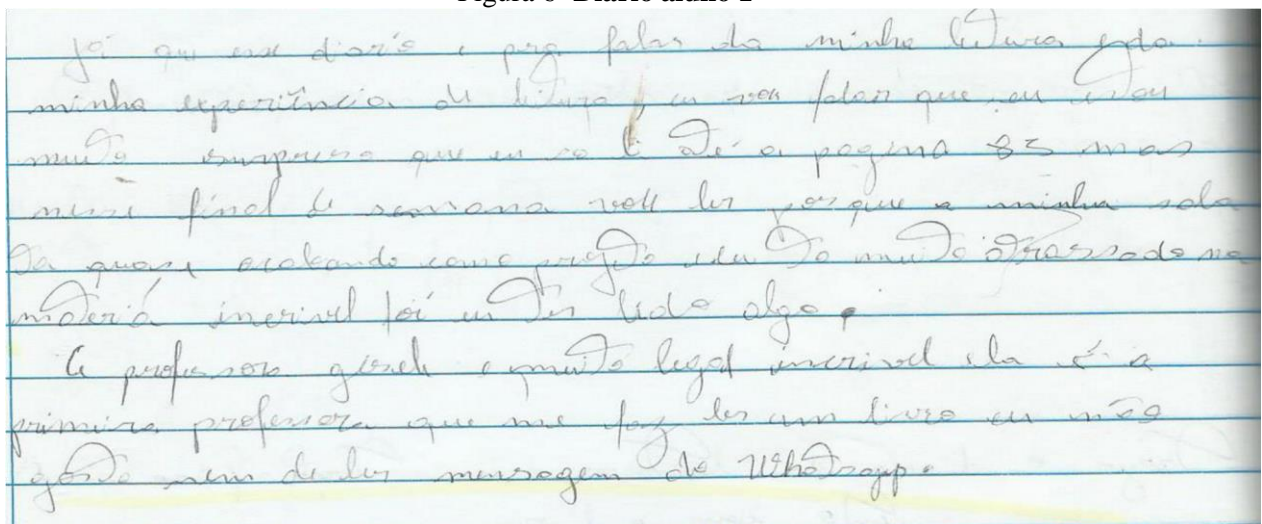 Figura 6- Diário aluno 2
já que esse diario e pra falar da minha leitura e da
minha experiência de leitura, eu vou falar que eu estou
muito surpreso que eu so li até a pagina 85 mas
nesse final de semana vou ler porque a minha sala
ta quase acabando como projeto eu to muito atrassado na
materia incrivel foi eu ter lido algo.
A professora gisele e muito legal incrivel ela é a
primeira professora que me faz ler um livro eu não
gosto nem de ler mensagem do Whatsapp.